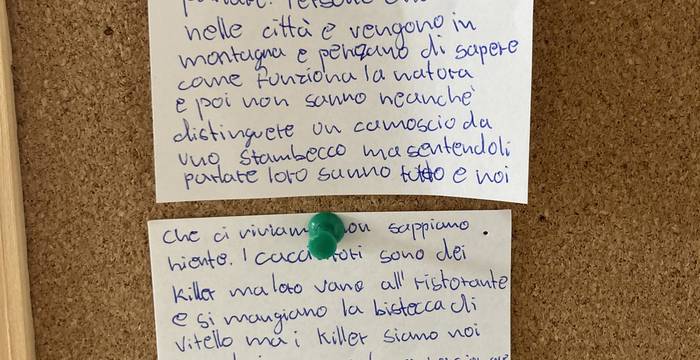 nelle città e vengono in
montagna e penzano di sapere
come funziona la natora
e poi non sanno neanche
distinguere un camoscio da
uno stambecco ma sentendoli
parlare loro sanno tutto e noi
che ci viviam non sappiamo
niento. I cacciatori sono dei
killer ma loro vano all' ristorante
e si mangiano la bistecca di
vitello ma i killer siamo noi